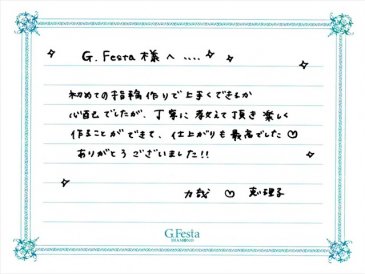 G.Festa 様へ ....
初めての指輪作りで上手くできるか
心配でしたが、丁寧に教えて頂き楽しく
作ることができて、仕上がりも最高でした♡
ありがとうございました!!
力哉 ♡ 恵理子
G.Festa
DIAMOND